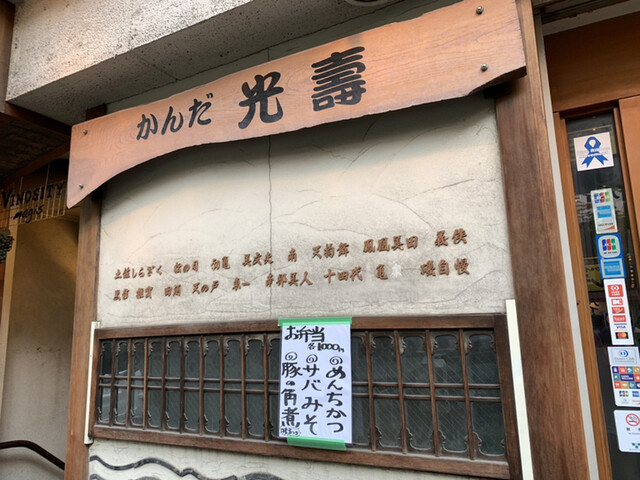 かんだ 光壽
VINOSITY
土佐しらぎく 松の司 初亀 美丈夫 南 天狗舞 鳳凰美田 義侠
田酒 天の戸 東一 赤部美人 十四代 亀 磯自慢
お弁当
各1000円
◎めんちかつ
◎サバみそ
◎豚の角煮
JCB